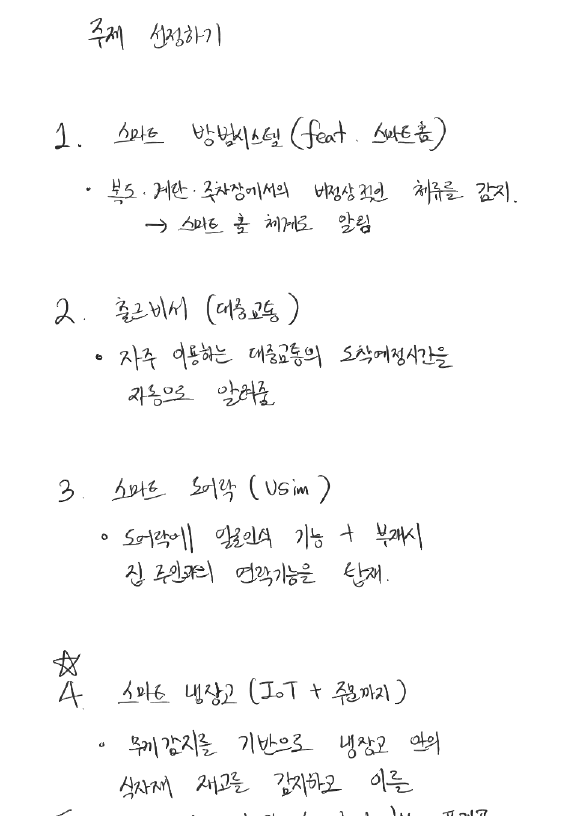 주제 선정하기
1. 스마트 방범시스템 (feat. 스마트홈)
· 복도·계단·주차장에서의 비정상적인 체류를 감지.
→ 스마트 홈 체계로 알림
2. 출근비서 (대중교통)
• 자주 이용하는 대중교통의 도착예정시간을
자동으로 알려줌
3. 스마트 도어락 (Usim)
• 도어락에 얼굴인식 기능 + 부재시
집 주인과의 연락기능을 탑재.
☆
4. 스마트 냉장고 (IoT + 주문까지)
• 무게감지를 기반으로 냉장고 안의
식자재 재고를 감지하고 이를